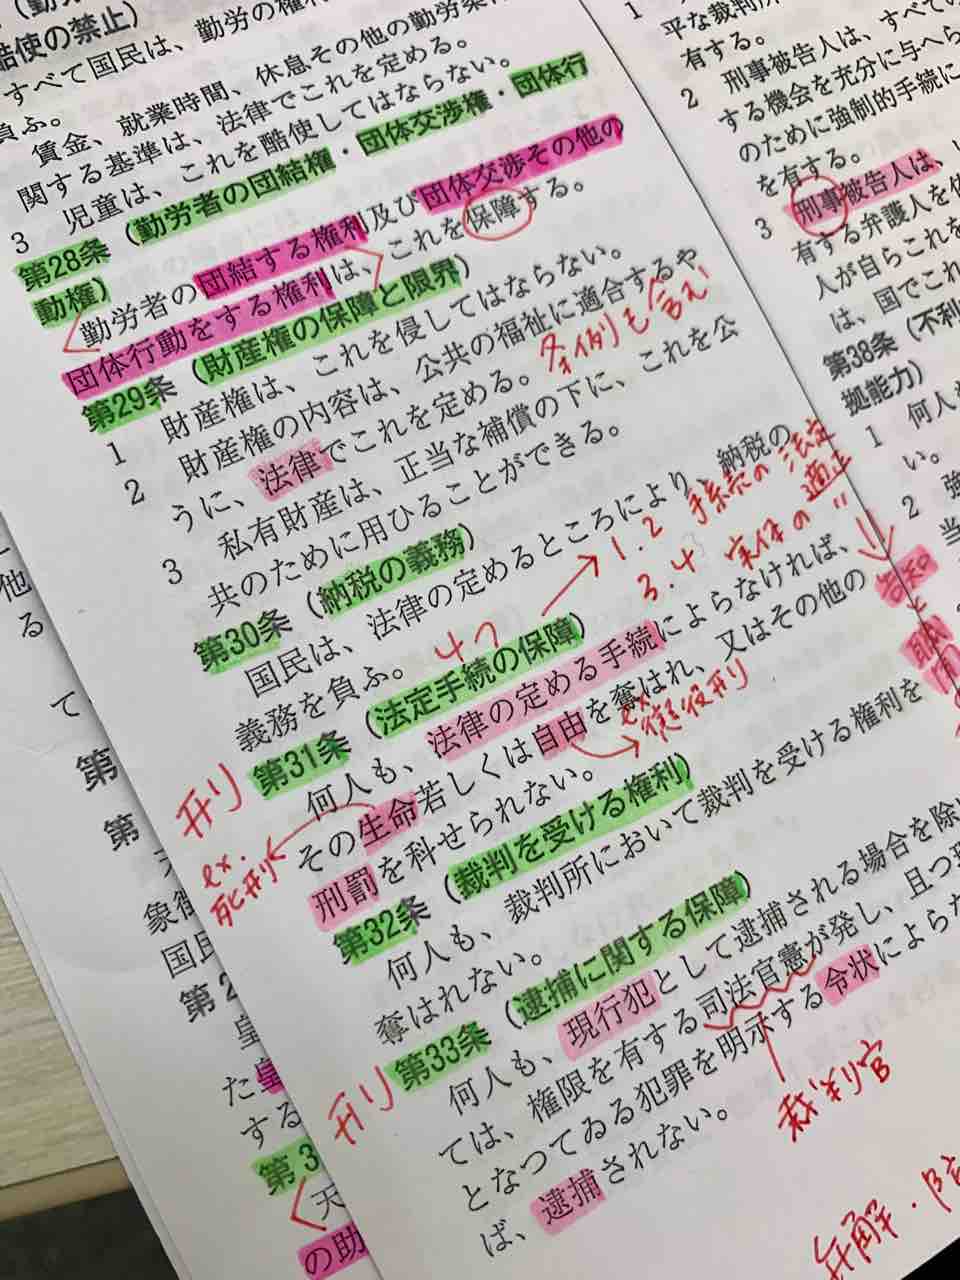 酷使の禁止)
すべて国民は、勤労の権利
負ふ。
賃金、就業時間、休息その他の勤労条
関する基準は、法律でこれを定める。
3 児童は、これを酷使してはならない。
第28条(勤労者の団結権・団体交渉権・団体行
動権)
勤労者の団結する権利及び団体交渉その他の
団体行動をする権利は、これを保障する。
第29条(財産権の保障と限界)
1 財産権は、これを侵してはならない。
2 財産権の内容は、公共の福祉に適合するや
うに、法律でこれを定める。
条例も含む
3 私有財産は、正当な補償の下に、これを公
共のために用ひることができる。
第30条(納税の義務)
国民は、法律の定めるところにより、納税の
義務を負ふ。
4つ
1.2 手続の法定
適正
3.4 実体の 〃
告知
第31条(法定手続の保障)
何人も、法律の定める手続によらなければ、
その生命若しくは自由を奪はれ、又はその他の
刑罰を科せられない。
刑
ex.
死刑
ex
懲役刑
第32条(裁判を受ける権利)
何人も、裁判所において裁判を受ける権利を
奪はれない。
刑
第33条(逮捕に関する保障)
何人も、現行犯として逮捕される場合を除
ては、権限を有する司法官憲が発し、且つ
となつてゐる犯罪を明示する令状によらな
ば、逮捕されない。
裁判官
弁解・防
1
平な裁判所
有する。
2 刑事被告人は、すべての
する機会を充分に与へら
のために強制的手続に
を有する。
3 刑事被告人は、
有する弁護人を依
人が自らこれを
は、国でこれ
第38条(不利
拠能力)
1 何人
い。
2 強
当
他
る
て
第
第
象徴
国民
第2
皇
た皇
する
第3
天
の助